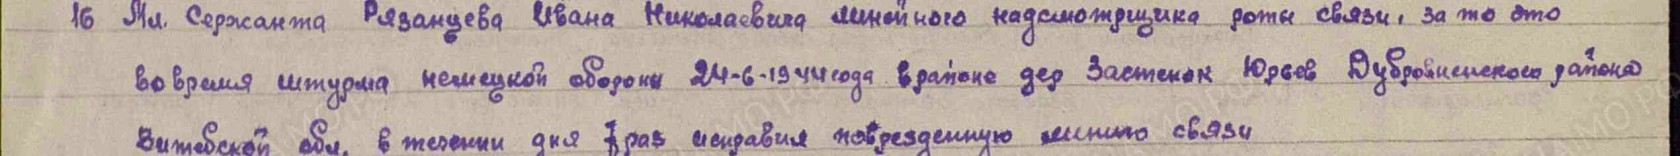 16 Мл. Сержанта Рязанцева Ивана Николаевича линейного надсмотрщика роты связи, за то что
во время штурма немецкой обороны 24-6-1944 года в районе дер Застенок Юрьев Дубровненского района
Витебской обл. в течении дня раз исправил поврежденную линию связи